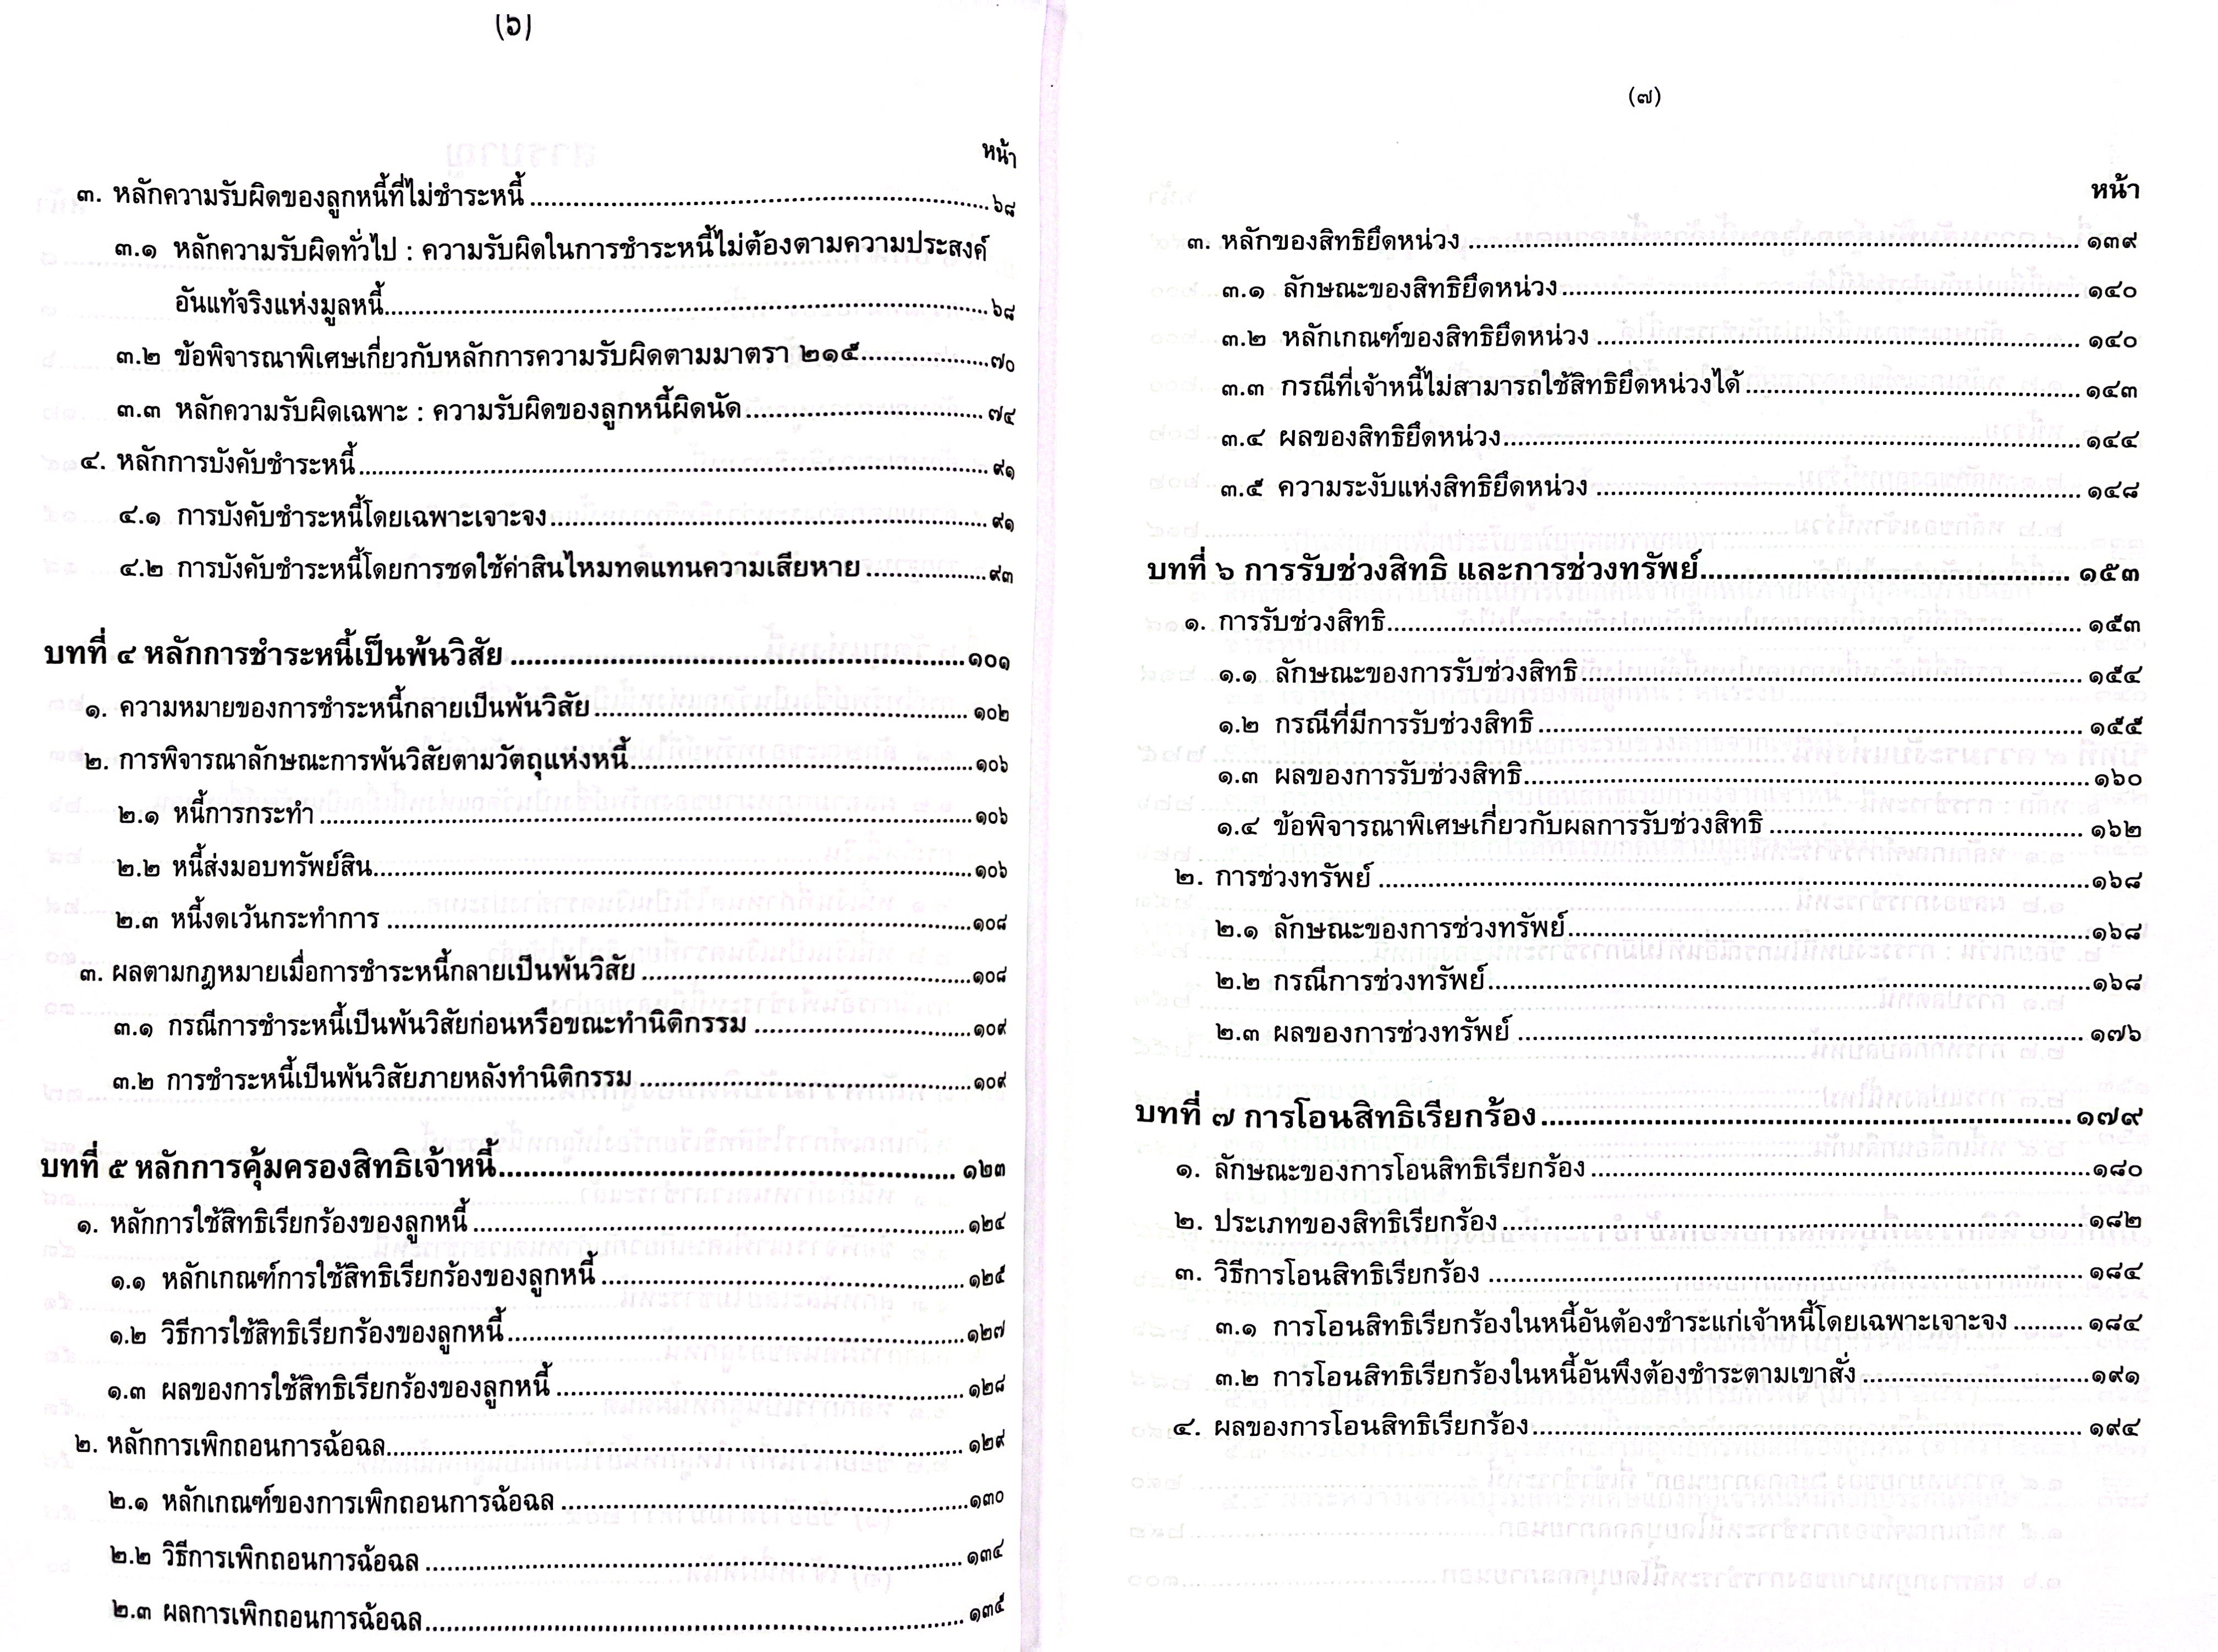 (๖)
หน้า
๓. หลักความรับผิดของลูกหนี้ที่ไม่ชำระหนี้ ๖๘
๓.๑ หลักความรับผิดทั่วไป : ความรับผิดในการชำระหนี้ไม่ต้องตามความประสงค์
อันแท้จริงแห่งมูลหนี้ ๖๘
๓.๒ ข้อพิจารณาพิเศษเกี่ยวกับหลักการความรับผิดตามมาตรา ๒๑๕ ๗๐
๓.๓ หลักความรับผิดเฉพาะ : ความรับผิดของลูกหนี้ผิดนัด ๗๔
๔. หลักการบังคับชำระหนี้ ๙๑
๔.๑ การบังคับชำระหนี้โดยเฉพาะเจาะจง ๙๑
๔.๒ การบังคับชำระหนี้โดยการชดใช้ค่าสินไหมทดแทนความเสียหาย ๙๓
บทที่ ๔ หลักการชำระหนี้เป็นพ้นวิสัย ๑๐๑
๑. ความหมายของการชำระหนี้กลายเป็นพ้นวิสัย ๑๐๒
๒. การพิจารณาลักษณะการพ้นวิสัยตามวัตถุแห่งหนี้ ๑๐๖
๒.๑ หนี้การกระทำ ๑๐๖
๒.๒ หนี้ส่งมอบทรัพย์สิน ๑๐๖
๒.๓ หนี้งดเว้นกระทำการ ๑๐๘
๓. ผลตามกฎหมายเมื่อการชำระหนี้กลายเป็นพ้นวิสัย ๑๐๘
๓.๑ กรณีการชำระหนี้เป็นพ้นวิสัยก่อนหรือขณะทำนิติกรรม ๑๐๙
๓.๒ การชำระหนี้เป็นพ้นวิสัยภายหลังทำนิติกรรม ๑๐๙
บทที่ ๕ หลักการคุ้มครองสิทธิเจ้าหนี้ ๑๒๓
๑. หลักการใช้สิทธิเรียกร้องของลูกหนี้ ๑๒๔
๑.๑ หลักเกณฑ์การใช้สิทธิเรียกร้องของลูกหนี้ ๑๒๕
๑.๒ วิธีการใช้สิทธิเรียกร้องของลูกหนี้ ๑๒๗
๑.๓ ผลของการใช้สิทธิเรียกร้องของลูกหนี้ ๑๒๘
๒. หลักการเพิกถอนการฉ้อฉล ๑๒๙
๒.๑ หลักเกณฑ์ของการเพิกถอนการฉ้อฉล ๑๓๐
๒.๒ วิธีการเพิกถอนการฉ้อฉล ๑๓๔
๒.๓ ผลการเพิกถอนการฉ้อฉล ๑๓๕
(๗)
หน้า
๓. หลักของสิทธิยึดหน่วง ๑๓๙
๓.๑ ลักษณะของสิทธิยึดหน่วง ๑๔๐
๓.๒ หลักเกณฑ์ของสิทธิยึดหน่วง ๑๔๐
๓.๓ กรณีที่เจ้าหนี้ไม่สามารถใช้สิทธิยึดหน่วงได้ ๑๔๓
๓.๔ ผลของสิทธิยึดหน่วง ๑๔๔
๓.๕ ความระงับแห่งสิทธิยึดหน่วง ๑๔๘
บทที่ ๖ การรับช่วงสิทธิ และการช่วงทรัพย์ ๑๕๓
๑. การรับช่วงสิทธิ ๑๕๓
๑.๑ ลักษณะของการรับช่วงสิทธิ ๑๕๔
๑.๒ กรณีที่มีการรับช่วงสิทธิ ๑๕๕
๑.๓ ผลของการรับช่วงสิทธิ ๑๖๐
๑.๔ ข้อพิจารณาพิเศษเกี่ยวกับผลการรับช่วงสิทธิ ๑๖๒
๒. การช่วงทรัพย์ ๑๖๘
๒.๑ ลักษณะของการช่วงทรัพย์ ๑๖๘
๒.๒ กรณีการช่วงทรัพย์ ๑๖๘
๒.๓ ผลของการช่วงทรัพย์ ๑๗๖
บทที่ ๗ การโอนสิทธิเรียกร้อง ๑๗๙
๑. ลักษณะของการโอนสิทธิเรียกร้อง ๑๘๐
๒. ประเภทของสิทธิเรียกร้อง ๑๘๒
๓. วิธีการโอนสิทธิเรียกร้อง ๑๘๔
๓.๑ การโอนสิทธิเรียกร้องในหนี้อันต้องชำระแก่เจ้าหนี้โดยเฉพาะเจาะจง ๑๘๔
๓.๒ การโอนสิทธิเรียกร้องในหนี้อันพึงต้องชำระตามเขาสั่ง ๑๙๑
๔. ผลของการโอนสิทธิเรียกร้อง ๑๙๔